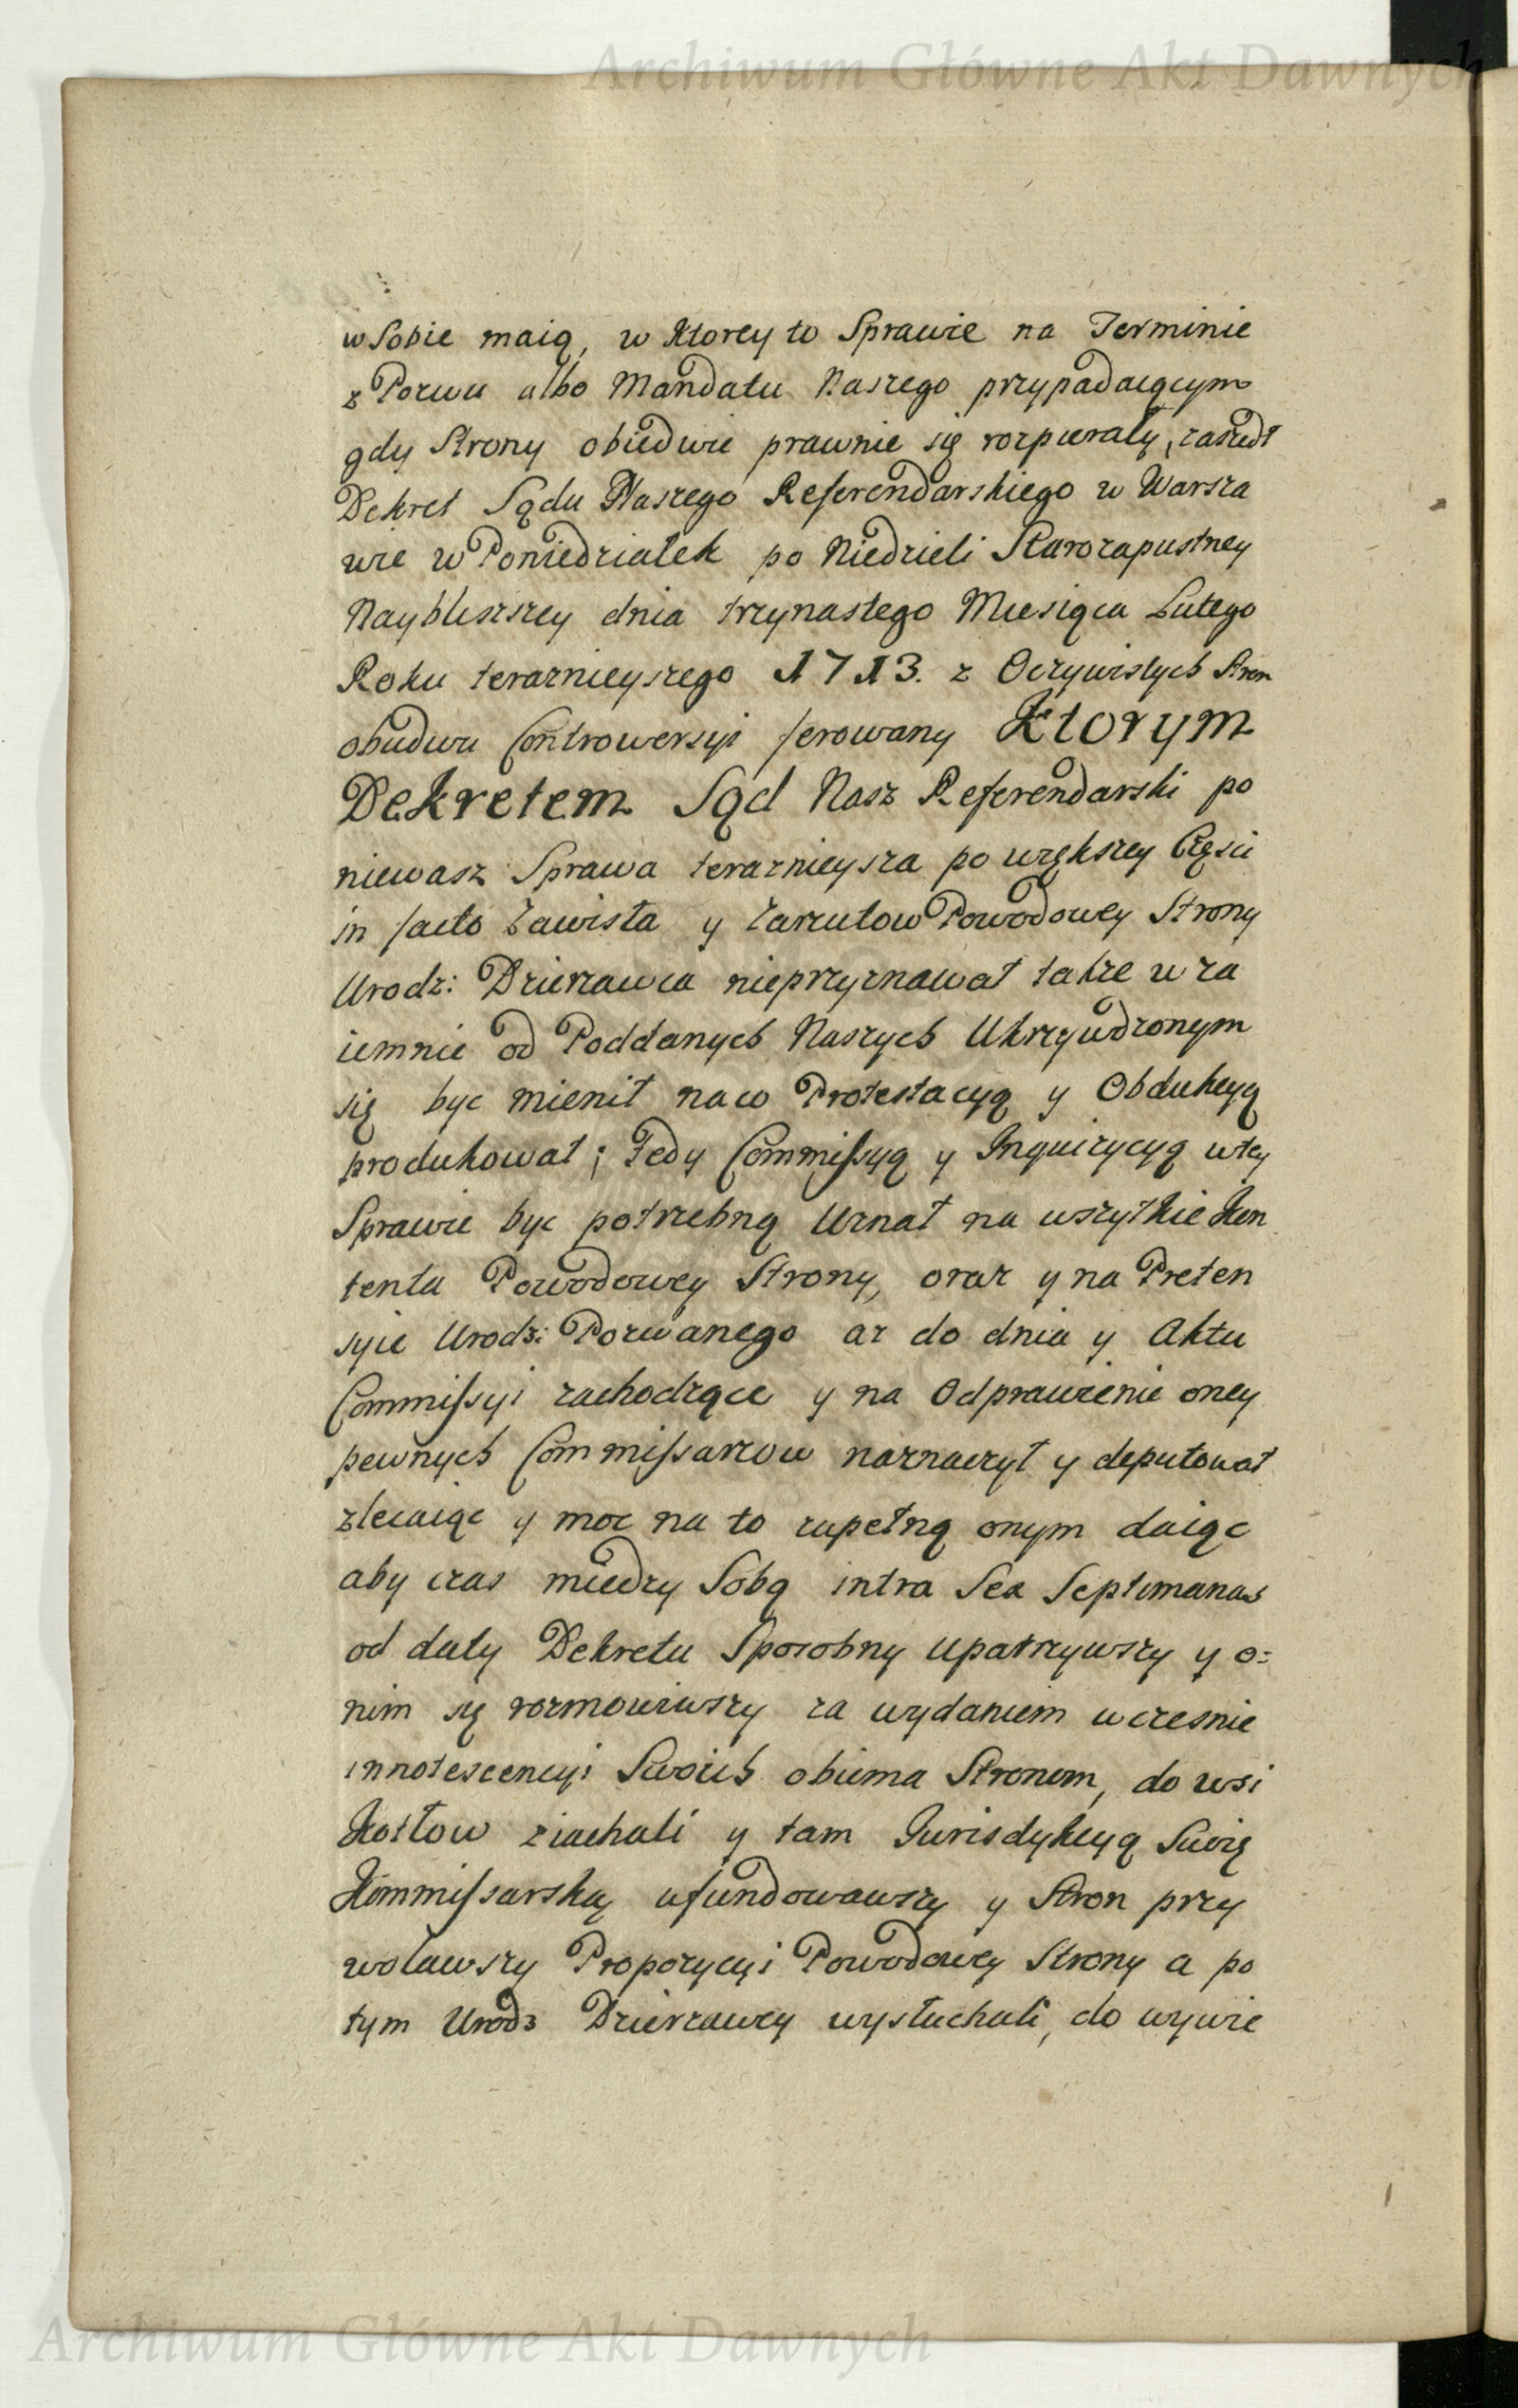 Archiwum Główne Akt Dawnych
w Sobie maią, w Ktorey to Sprawie na Terminie
z Pozwu albo Mandatu Naszego przypadaiącym
gdy Strony obiedwie prawnie się rozpierały, zaszedł
Dekret Sądu Naszego Referendarskiego w Warsza
wie w Poniedziałek po Niedzieli Starozapustney
Naybliszszey dnia trzynastego Miesiąca Lutego
Roku teraznieyszego 1713. z Oczywistych Stron
obudwu Controwersyi ferowany Ktorym
Dekretem Sąd Nasz Referendarski po
niewasz Sprawa teraznieysza po większey Częsci
in facto Zawisła y Zarzutow Powodowey Strony
Urodz: Dzierzawca nieprzyznawał także wza
iemnie od Poddanych Naszych Ukrzywdzonym
się byc mienił na co Protestacyą y Obdukcyą
produkował; Tedy Commissyą y Inquizycyą wtey
Sprawie byc potrzebną Uznał na wszytkie Kon
tenta Powodowey Strony, oraz y na Preten
syie Urodz: Pozwanego az do dnia y Aktu
Commissyi zachodzące y na Odprawienie oney
pewnych Commissarzow naznaczył y deputował
zlecaiąc y moc na to zupełną onym daiąc
aby czas miedzy Sobą intra Sex Septimanas
od daty Dekretu Sposobny upatrzywszy y o=
nim się rozmowiwszy za wydaniem wczesnie
innotescencyi Swoich obiema Stronom, do wsi
Kozłow ziachali y tam Jurisdykcyą Swoię
Kommissarską ufundowawszy y Stron przy
wolawszy Propozycyi Powodowey Strony a po
tym Urodz Dzierzawcy wysłuchali, do wywie
Archiwum Główne Akt Dawnych